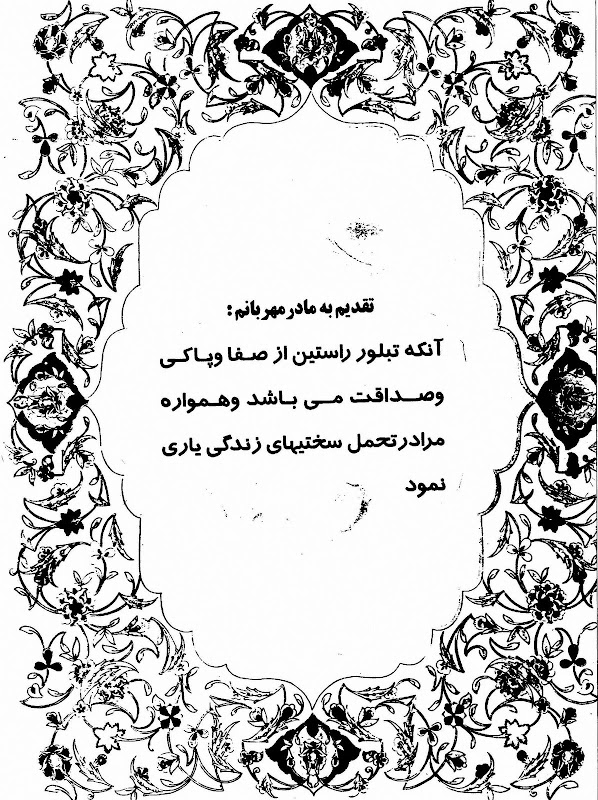 تقدیم به مادر مهربانم :
آنکه تبلور راستین از صفا وپاکی
وصداقت می باشد وهمواره
مرادرتحمل سختیهای زندگی یاری
نمود